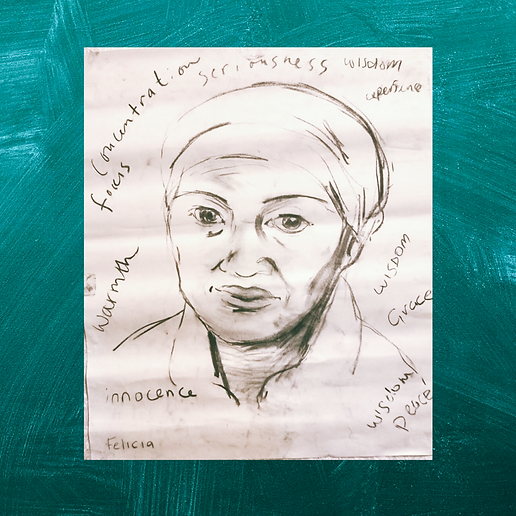 seriousness
wisdom
experience
Concentration
focus
wisdom
Warmth
Grace
innocence
wisdom
Peace
Felicia